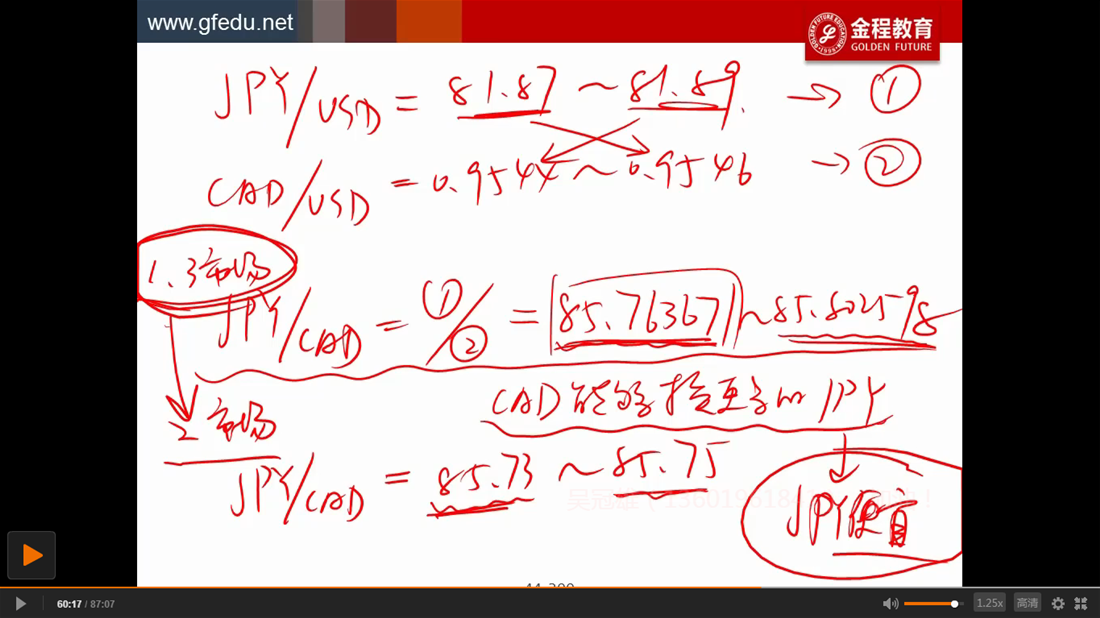 www.gfedu.net
金程教育
GOLDEN FUTURE
JPY/USD = 81.87 ~ 81.89. → ①
CAD/USD = 0.9544 ~ 0.9546 → ②
1.3市场
JPY/CAD = ①/② = 85.76367 ~ 85.802598
CAD能够换更多的JPY
2市场
JPY/CAD = 85.73 ~ 85.75
JPY便宜
60:17 / 87:07
1.25x
高清